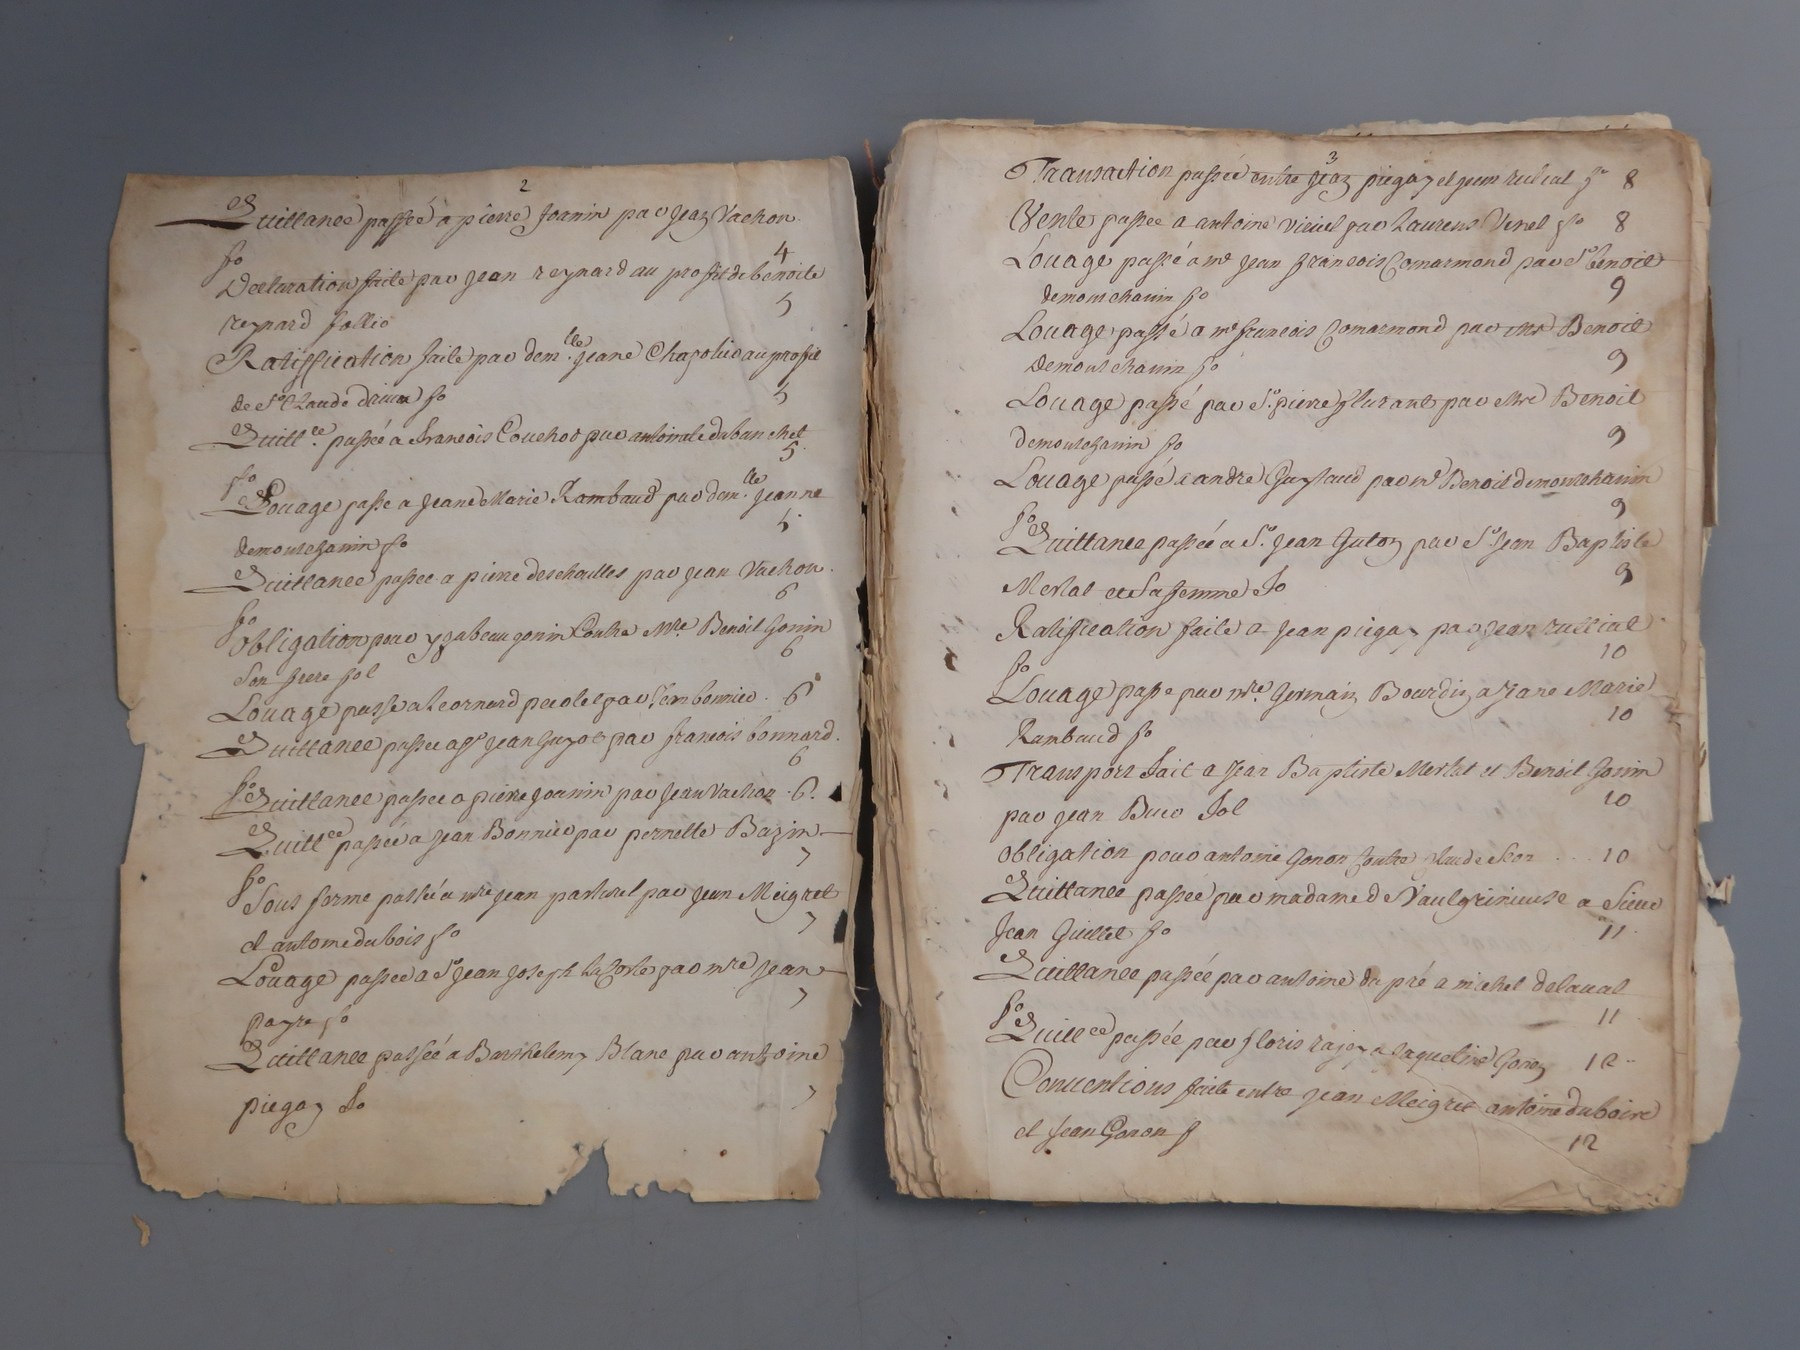 2
Quittance passée a pierre Joanin par Jean Vachon
fo 4
Declaration faite par Jean reynard au proffit de benoite
reynard follio 5
Ratiffication faite par dem.lle Jeane au proffit
de Sr Claude fo 5
Quitt.ce passée a francois Couchot par antoinete dubanchet
fo 5
Louage passe a Jeane Marie Rambaud par dem.lle Jeanne
demontchanin fo 5
Quittance passee a pierre deschailles par Jean Vachon
fo 6
obligation pour ysabeau gonin Contre Mre Benoit Gonin
Son frere fol 6
Louage passé a Leornard par bonnier 6
Quittance passee a Sr Jean Guyot par francois bonnard
fo 6
Quittance passee a pierre Joanin par Jean Vachon 6
Quittce passée a Jean Bonnier par pernette Bazin
fo 7
Sous ferme passée a mre Jean par Jean Meigret
et antoine dubois fo 7
Louage passee a Sr Jean Joseph par mre Jean
payre fo 7
Quittance passée a Barthelemy Blanc par antoine
piegay fo 7
3
Transaction passée entre Jean piegay et Jean rullial fo 8
Vente passee a antoine viriel par Laurens Verel fo 8
Louage passé a me Jean francois Comarmond par Sr benoit
demontchanin fo 9
Louage passé a me francois Comarmond par mre Benoit
Demontchanin fo 9
Louage passé par Sr pierre flurant par Mre Benoit
Demontchanin fo 9
Louage passé a andre par me Benoit demontchanin
fo 9
Quittance passée a Sr Jean Guton par Sr Jean Baptiste
Merlat et Sa femme fo 9
Ratiffication faite a Jean piegay par Jean rullial
fo 10
Louage passe par mre Germain Bourdin a Jane Marie
Rambaud fo 10
Transport fait a Jean Baptiste Merlat et Benoit Gonin
par Jean Buer fol 10
obligation pour antoine Gonon Contre 10
Quittance passée par madame de Vaulgrineuse a Sieur
Jean Guillet fo 11
Quittance passée par antoine du pré a michel delaval
fo 11
Quittce passée par floris a Jaqueline Gonon 12
Conventions faite entre Jean Meigret antoine duboire
et Jean Gonon f 12